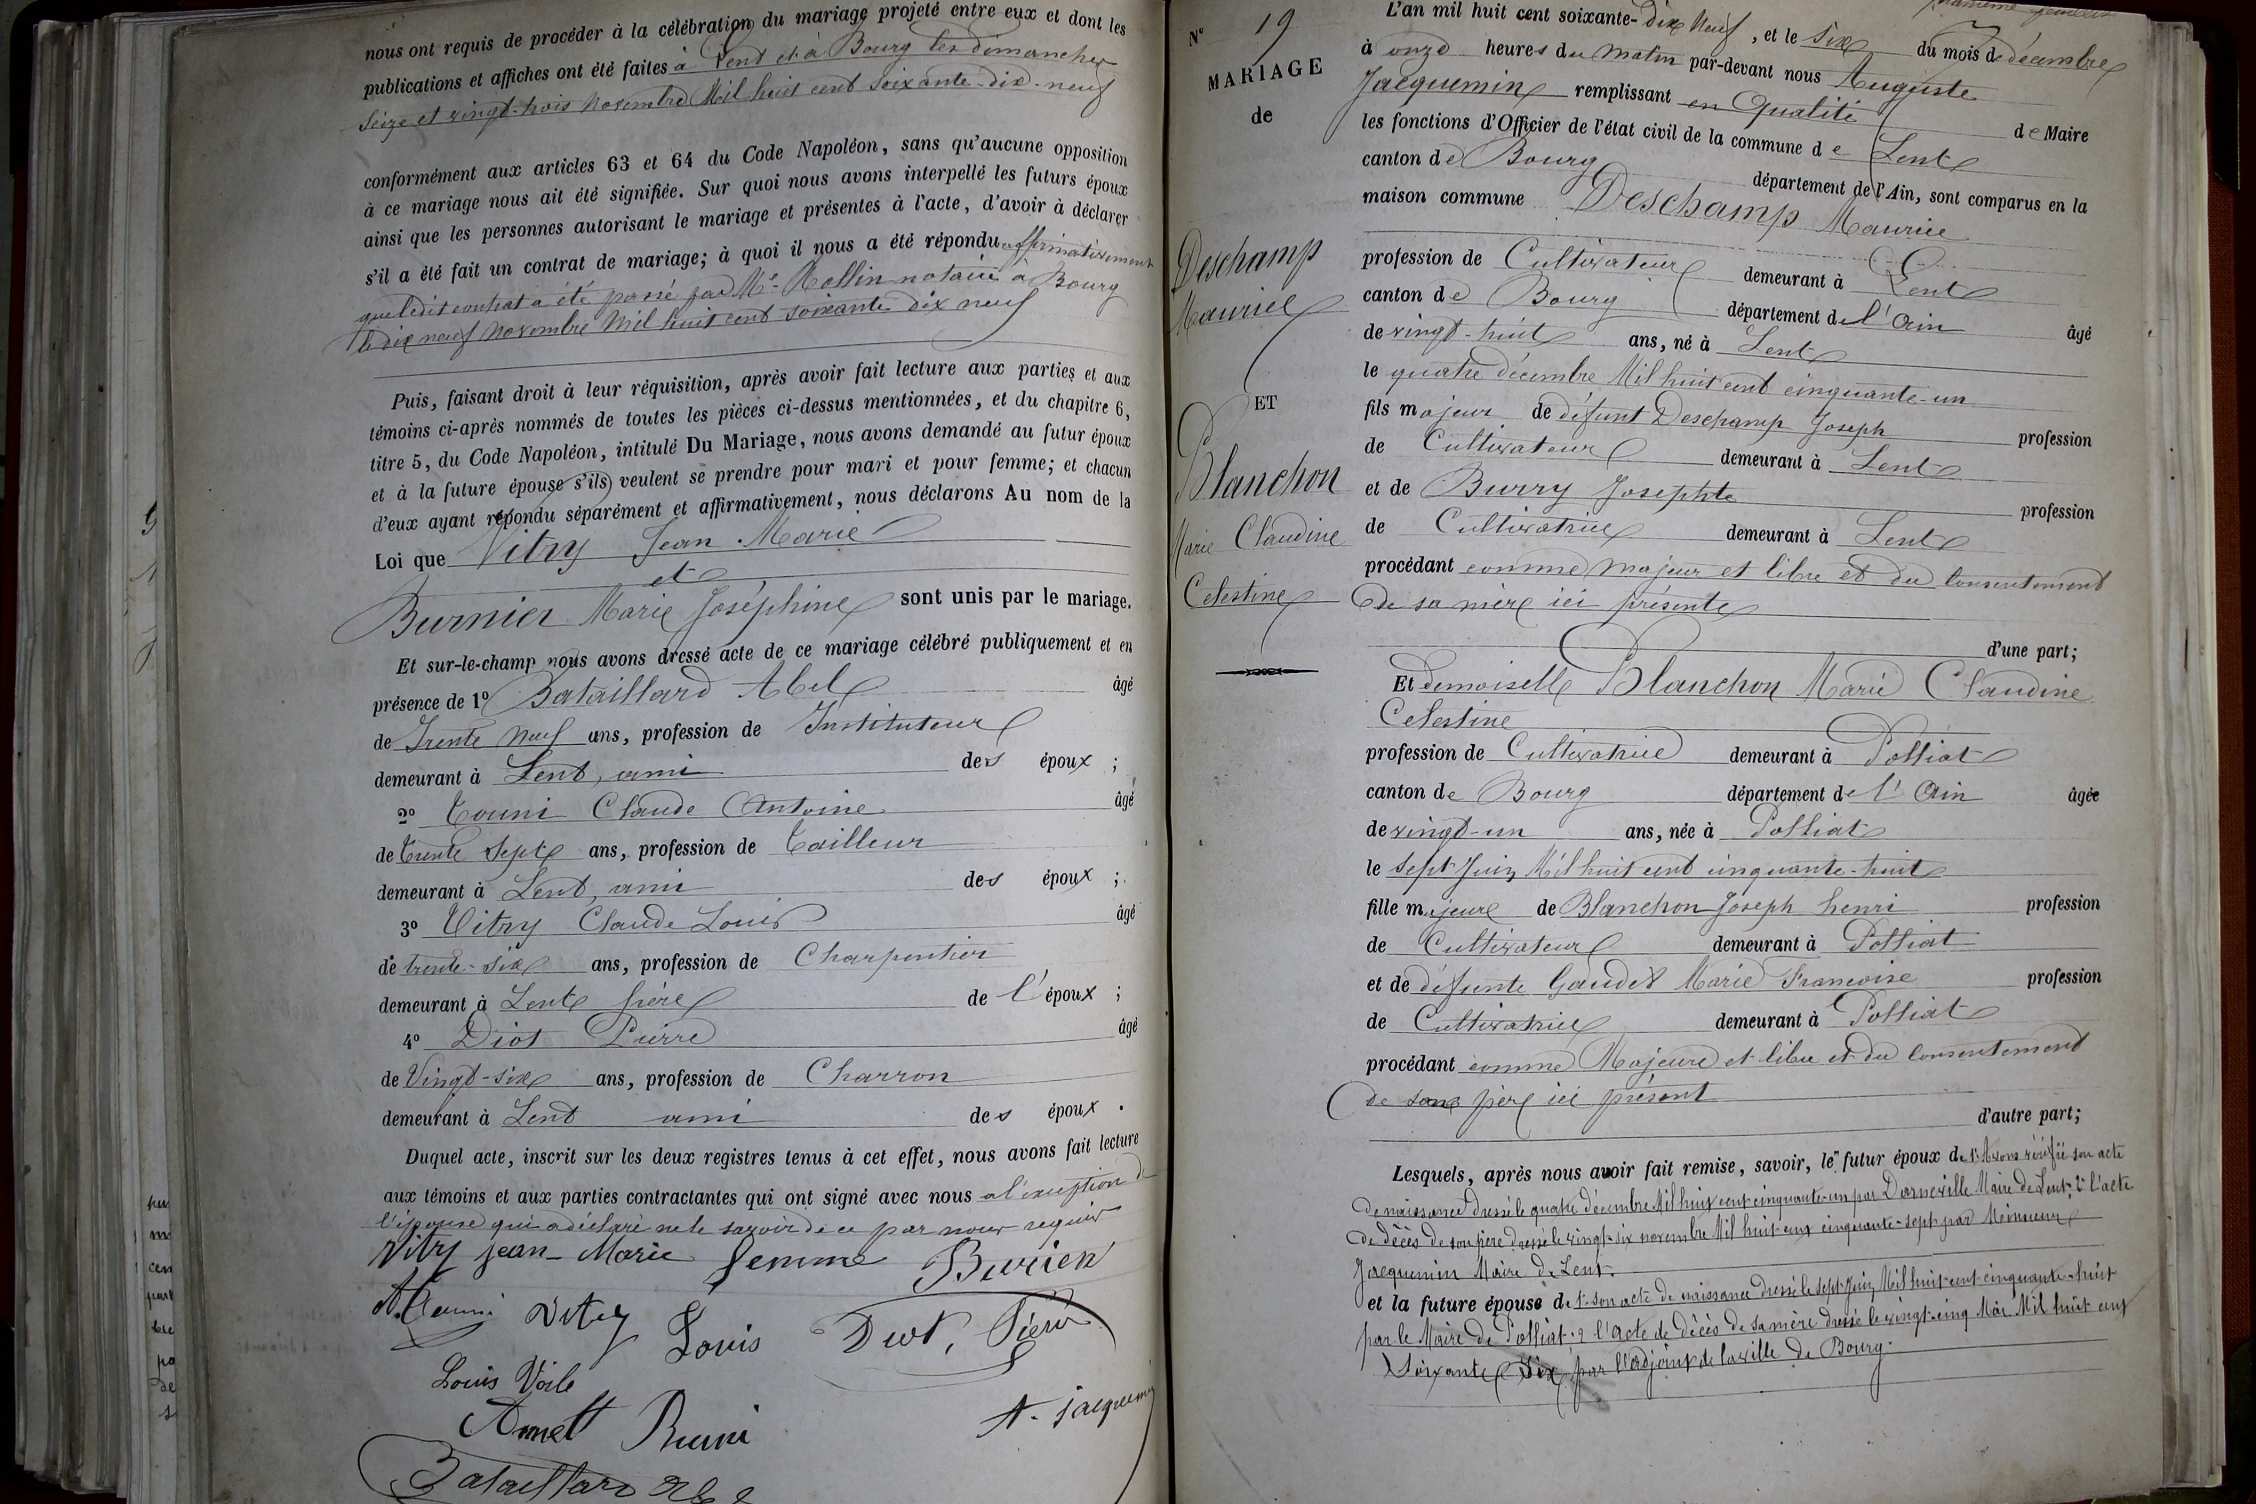 nous ont requis de procéder à la célébration du mariage projeté entre eux et dont les
publications et affiches ont été faites à Lent et à Bourg les dimanches
seize et vingt-trois Novembre Mil huit cent soixante-dix-neuf
conformément aux articles 63 et 64 du Code Napoléon, sans qu'aucune opposition
à ce mariage nous ait été signifiée. Sur quoi nous avons interpellé les futurs époux
ainsi que les personnes autorisant le mariage et présentes à l'acte, d'avoir à déclarer
s'il a été fait un contrat de mariage; à quoi il nous a été répondu affirmativement
que ledit contrat a été passé par Me Rollin notaire à Bourg
le dix neuf novembre Mil huit cent soixante dix neuf
Puis, faisant droit à leur réquisition, après avoir fait lecture aux parties et aux
témoins ci-après nommés de toutes les pièces ci-dessus mentionnées, et du chapitre 6,
titre 5, du Code Napoléon, intitulé Du Mariage, nous avons demandé au futur époux
et à la future épouse s'ils veulent se prendre pour mari et pour femme; et chacun
d'eux ayant répondu séparément et affirmativement, nous déclarons Au nom de la
Loi que Vitry Jean Marie
et
Burnier Marie Joséphine sont unis par le mariage.
Et sur-le-champ nous avons dressé acte de ce mariage célébré publiquement et en
présence de 1º Bataillard Abel âgé
de Trente neuf ans, profession de Instituteur
demeurant à Lent, ami des époux ;
2º Touni Claude Antoine âgé
de trente sept ans, profession de Tailleur
demeurant à Lent, ami des époux ;
3º Vitry Claude Louis âgé
de trente-six ans, profession de Charpentier
demeurant à Lent frère de l'époux ;
4º Diot Pierre âgé
de Vingt-six ans, profession de Charron
demeurant à Lent ami des époux .
Duquel acte, inscrit sur les deux registres tenus à cet effet, nous avons fait lecture
aux témoins et aux parties contractantes qui ont signé avec nous a l'exception de
l'épouse qui a déclaré ne le savoir de ce par nous requis
Vitry jean-Marie femme
Vitry Louis Diot, Pierre
Louis
A. jacquemin
Bataillard
Nº 19
MARIAGE
de
Deschamp
Maurice
ET
Blanchon
Marie Claudine
Celestine
L'an mil huit cent soixante-dix Neuf, et le six du mois de décembre
à onze heures du matin par-devant nous Auguste
Jacquemin remplissant en Qualité de Maire
les fonctions d'Officier de l'état civil de la commune de Lent
canton de Bourg département de l'Ain, sont comparus en la
maison commune Deschamp Maurice
profession de Cultivateur demeurant à Lent
canton de Bourg département de l'Ain âgé
de vingt-huit ans, né à Lent
le quatre décembre Mil huit cent cinquante-un
fils majeur de défunt Deschamp Joseph profession
de Cultivateur demeurant à Lent
et de Burry Josephte profession
de Cultivatrice demeurant à Lent
procédant comme majeur et libre et du consentement
de sa mère ici présente
d'une part;
Et demoiselle Blanchon Marie Claudine
Celestine
profession de Cultivatrice demeurant à Polliat
canton de Bourg département de l'Ain âgée
de vingt-un ans, née à Polliat
le sept Juin Mil huit cent cinquante-huit
fille majeure de Blanchon Joseph henri profession
de Cultivateur demeurant à Polliat
et de défunte Gaudet Marie Francoise profession
de Cultivatrice demeurant à Polliat
procédant comme Majeure et libre et du consentement
de son père ici présent
d'autre part;
Lesquels, après nous avoir fait remise, savoir, le futur époux de 1º Avons vérifié son acte
de naissance dressé le quatre décembre Mil huit cent cinquante-un par Darneville Maire de Lent. 2º l'acte
de décès de son père dressé le vingt-six novembre Mil huit cent cinquante-sept par Monsieur
Jacquemin Maire de Lent.
et la future épouse de 1º son acte de naissance dressé le sept Juin Mil huit cent cinquante-huit
par le Maire de Polliat. 2 l'acte de décès de sa mère dressé le vingt-cinq Mai Mil huit cent
soixante six par l'adjoint de la ville de Bourg.